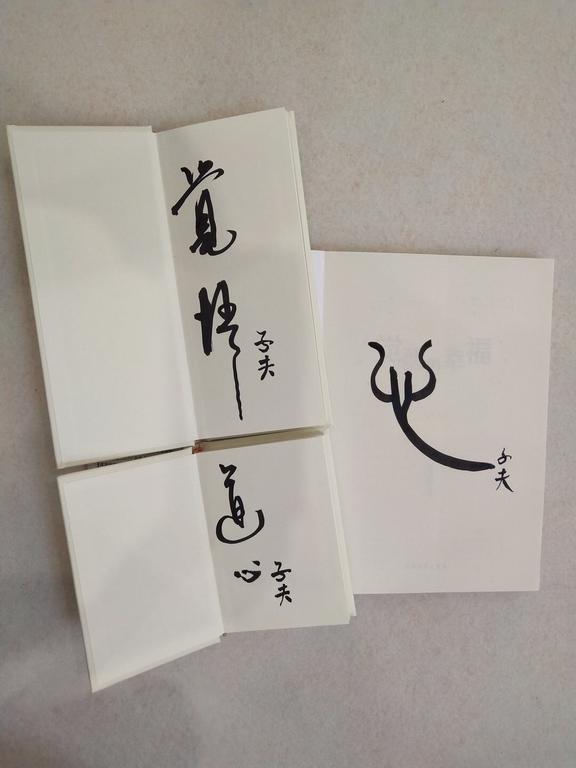 覺悟
子夫
道心
子夫
心
子夫